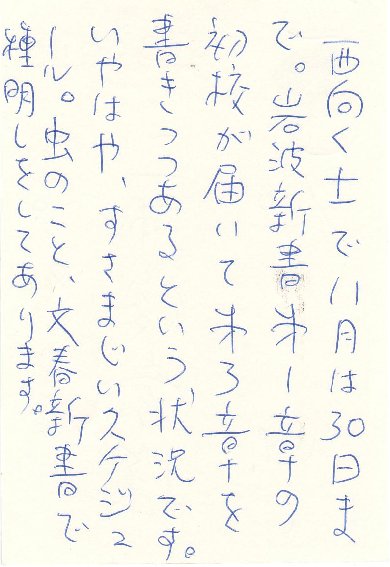 西向く士で11月は30日ま
で。岩波新書オ1章の
初校が届いてオ3章を
書きつつあるという状況です。
いやはや、すさまじいスケジュ
ール。虫のこと、文春新書で
種明しをしてあります。